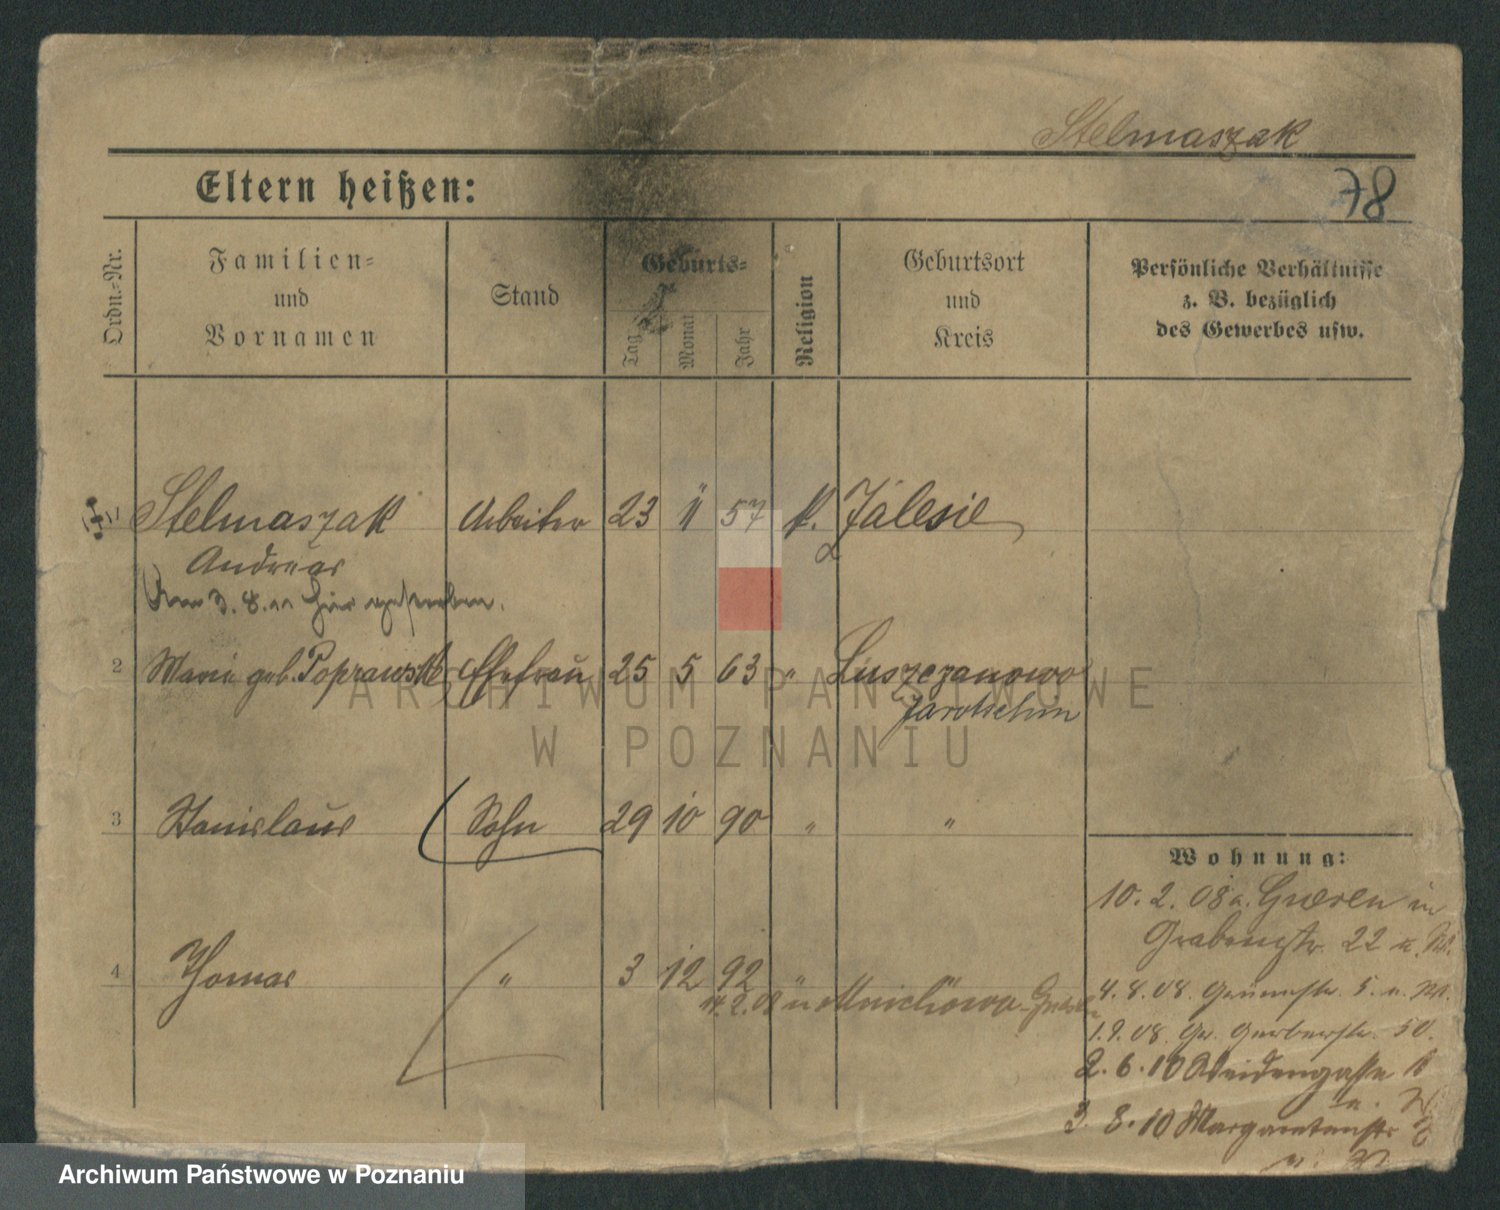 Stelmaszak
Eltern heißen:
78
Ordn.-Nr.
Familien-
und
Vornamen
Stand
Geburts-
Tag
Monat
Jahr
Religion
Geburtsort
und
Kreis
Persönliche Verhältnisse
z. B. bezüglich
des Gewerbes usw.
Stelmaszak Arbeiter 23 11 57 k. Zalesie
Andreas
Am 3. 8. 11 hier gestorben.
2 Marie geb. Poprawski Ehefrau 25 5 63 " Luszczanowo
Jarotschin
3 Stanislaus Sohn 29 10 90 " "
4 Thomas " 3 12 92 "
14. 2. 08 n Mnichowo
Wohnung:
10. 2. 08 a. Gnesen in
Grabenstr. 22
4. 8. 08. 5.
1. 9. 08. Gr. Gerberstr. 50.
2. 6. 10 Weidengasse
3. 8. 10 Margaretenstr
ARCHIWUM PAŃSTWOWE
W POZNANIU
Archiwum Państwowe w Poznaniu